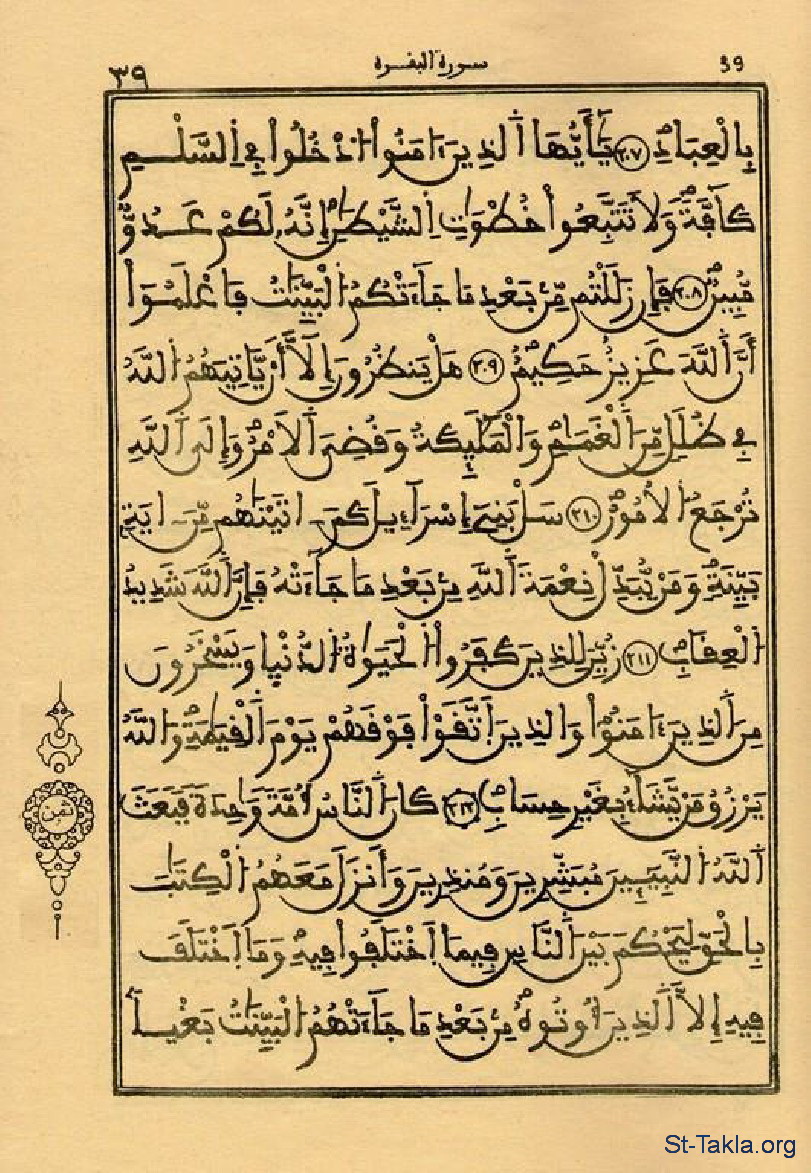 39 سورة البقرة ٣٩
بِالْعِبَادِ ٢٠٧ يَٰأَيُّهَا اَلذِينَ ءَامَنُواْ ادْخُلُواْ فِي اِلسَّلْمِ
كَآفَّةً وَلَا تَتَّبِعُواْ خُطْوَٰتِ اِلشَّيْطَٰنِ إِنَّهُۥ لَكُمْ عَدُوٌّ
مُّبِينٌ ٢٠٨ فَإِن زَلَلْتُم مِّنۢ بَعْدِ مَا جَآءَتْكُمُ الْبَيِّنَٰتُ فَاعْلَمُوٓاْ
أَنَّ اَللَّهَ عَزِيزٌ حَكِيمٌ ٢٠٩ هَلْ يَنظُرُونَ إِلَّآ أَنْ يَّاتِيَهُمُ اللَّهُ
فِي ظُلَلٍ مِّنَ اَلْغَمَٰمِ وَالْمَلَٰٓئِكَةُ وَقُضِيَ اَلَامْرُ وَإِلَى اَللَّهِ
تُرْجَعُ الُامُورُ ٢١٠ سَلْ بَنِيٓ إِسْرَآءِيلَ كَمَ ـاتَيْنَٰهُم مِّنَ ـايَةٍ
بَيِّنَةٍ وَمَنْ يُّبَدِّلْ نِعْمَةَ اَللَّهِ مِنۢ بَعْدِ مَا جَآءَتْهُ فَإِنَّ اَللَّهَ شَدِيدُ
الْعِقَابِ ٢١١ زُيِّنَ لِلذِينَ كَفَرُواْ الْحَيَوٰةُ الدُّنْيا وَيَسْخَرُونَ
مِنَ اَلذِينَ ءَامَنُواْ وَالذِينَ اَتَّقَوْاْ فَوْقَهُمْ يَوْمَ اَلْقِيَٰمَةِ وَاللَّهُ
يَرْزُقُ مَنْ يَّشَآءُ بِغَيْرِ حِسَابٍ ٢١٢ كَانَ اَلنَّاسُ أُمَّةً وَٰحِدَةً فَبَعَثَ
اَللَّهُ النَّبِيٓـِٕينَ مُبَشِّرِينَ وَمُنذِرِينَ وَأَنزَلَ مَعَهُمُ الْكِتَٰبَ
بِالْحَقِّ لِيَحْكُمَ بَيْنَ اَلنَّاسِ فِيمَا اَخْتَلَفُواْ فِيهِ وَمَا اَخْتَلَفَ
فِيهِ إِلَّا اَلذِينَ أُوتُوهُ مِنۢ بَعْدِ مَا جَآءَتْهُمُ الْبَيِّنَٰتُ بَغْياَۢ
ثمن
St-Takla.org